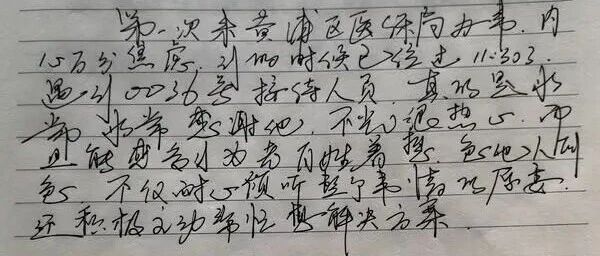 第一次来黄浦区医保局办事,内
心万分焦虑,到的时候已经过11:30了.
遇到0036号接待人员,真的是非
常非常感谢他,不光热心,而
且能感受到为老百姓着想,急他人所
急,不仅耐心倾听整个事情的原委,
还积极主动帮忙想解决方案.